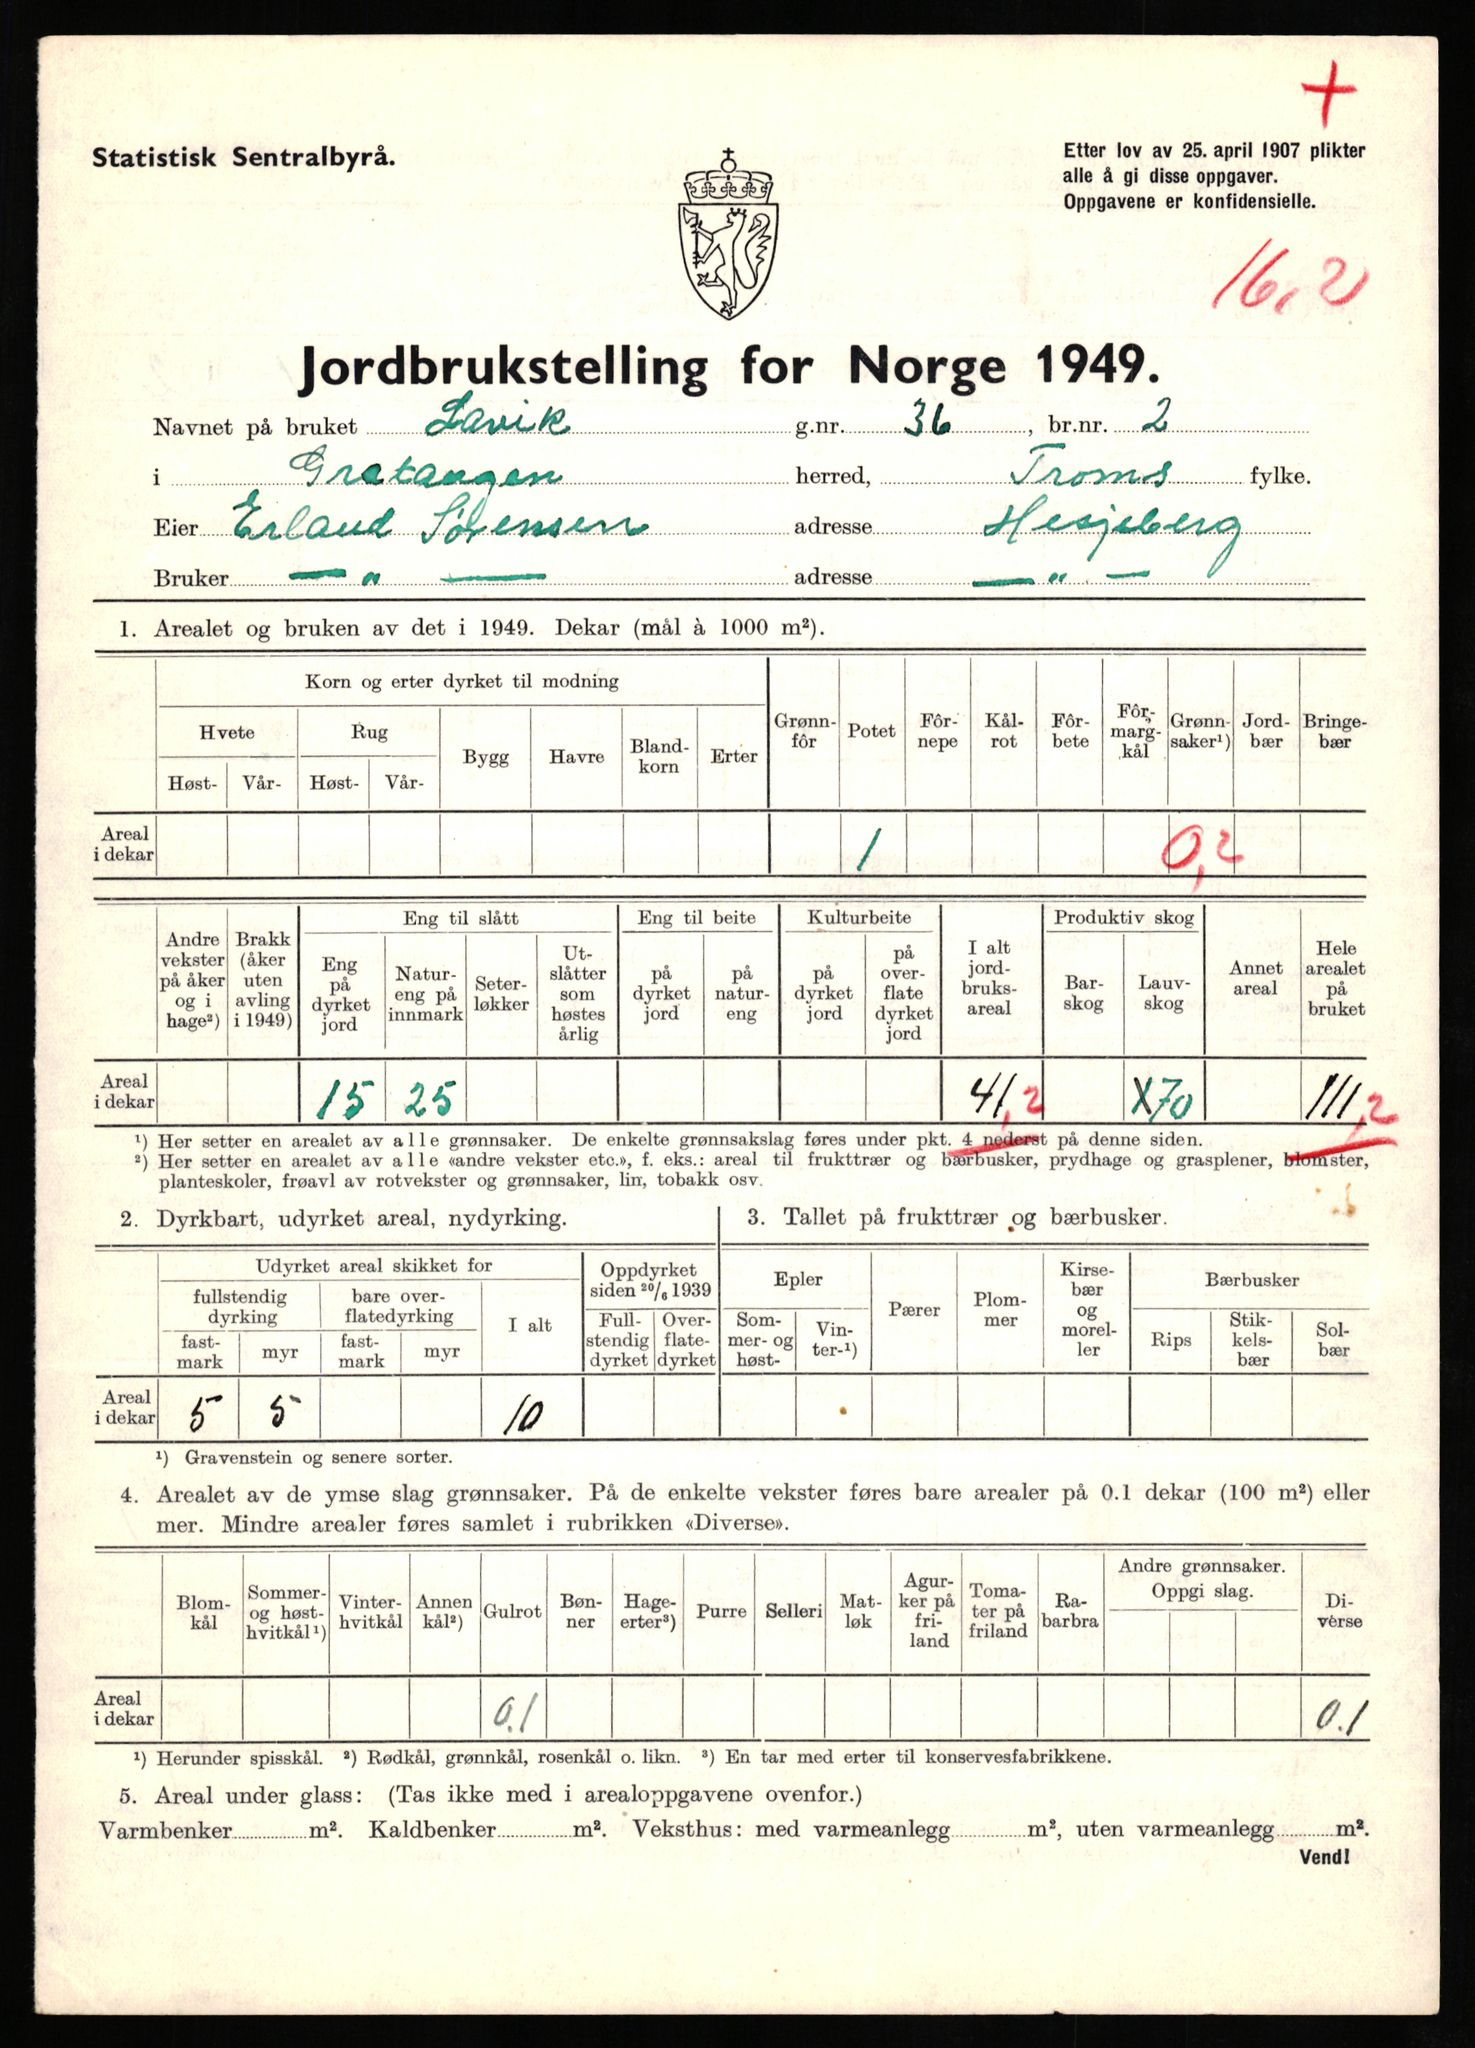 Statistisk Sentralbyrå.
Etter lov av 25. april 1907 plikter
alle å gi disse oppgaver.
Oppgavene er konfidensielle.
16,2
Jordbrukstelling for Norge 1949.
Navnet på bruket Lavik g.nr. 36, br.nr. 2
i Gratangen herred, Troms fylke.
Eier Erland Sørensen adresse Hesjeberg
Bruker — „ — adresse — „ —
1. Arealet og bruken av det i 1949. Dekar (mål à 1000 m²).
Korn og erter dyrket til modning
Hvete Rug Bygg Havre Bland-korn Erter Grønn-fôr Potet Fôr-nepe Kål-rot Fôr-bete Fôr-marg-kål Grønn-saker¹) Jord-bær Bringe-bær
Høst- Vår- Høst- Vår-
Areal i dekar 1 0,2
Andre vekster på åker og i hage²) Brakk (åker uten avling i 1949) Eng til slått Eng til beite Kulturbeite I alt jord-bruks-areal Produktiv skog Annet areal Hele arealet på bruket
Eng på dyrket jord Natur-eng på innmark Seter-løkker Ut-slåtter som høstes årlig på dyrket jord på natur-eng på dyrket jord på over-flate dyrket jord Bar-skog Lauv-skog
Areal i dekar 15 25 41,2 X70 111,2
¹) Her setter en arealet av alle grønnsaker. De enkelte grønnsakslag føres under pkt. 4 nederst på denne siden.
²) Her setter en arealet av alle «andre vekster etc.», f. eks.: areal til frukttrær og bærbusker, prydhage og grasplener, blomster,
planteskoler, frøavl av rotvekster og grønnsaker, lin, tobakk osv.
2. Dyrkbart, udyrket areal, nydyrking.
Udyrket areal skikket for Oppdyrket siden 20/6 1939
fullstendig dyrking bare over-flatedyrking I alt Full-stendig dyrket Over-flate-dyrket
fast-mark myr fast-mark myr
Areal i dekar 5 5 10
¹) Gravenstein og senere sorter.
3. Tallet på frukttrær og bærbusker.
Epler Pærer Plom-mer Kirse-bær og morel-ler Bærbusker
Som-mer- og høst- Vin-ter-¹) Rips Stik-kels-bær Sol-bær
4. Arealet av de ymse slag grønnsaker. På de enkelte vekster føres bare arealer på 0.1 dekar (100 m²) eller
mer. Mindre arealer føres samlet i rubrikken «Diverse».
Blom-kål Sommer- og høst-hvitkål¹) Vinter-hvitkål Annen kål²) Gulrot Bøn-ner Hage-erter³) Purre Selleri Mat-løk Agur-ker på fri-land Toma-ter på friland Ra-barbra Andre grønnsaker. Oppgi slag. Di-verse
Areal i dekar 0.1 0.1
¹) Herunder spisskål. ²) Rødkål, grønnkål, rosenkål o. likn. ³) En tar med erter til konservesfabrikkene.
5. Areal under glass: (Tas ikke med i arealoppgavene ovenfor.)
Varmbenker m². Kaldbenker m². Veksthus: med varmeanlegg m², uten varmeanlegg m².
Vend!